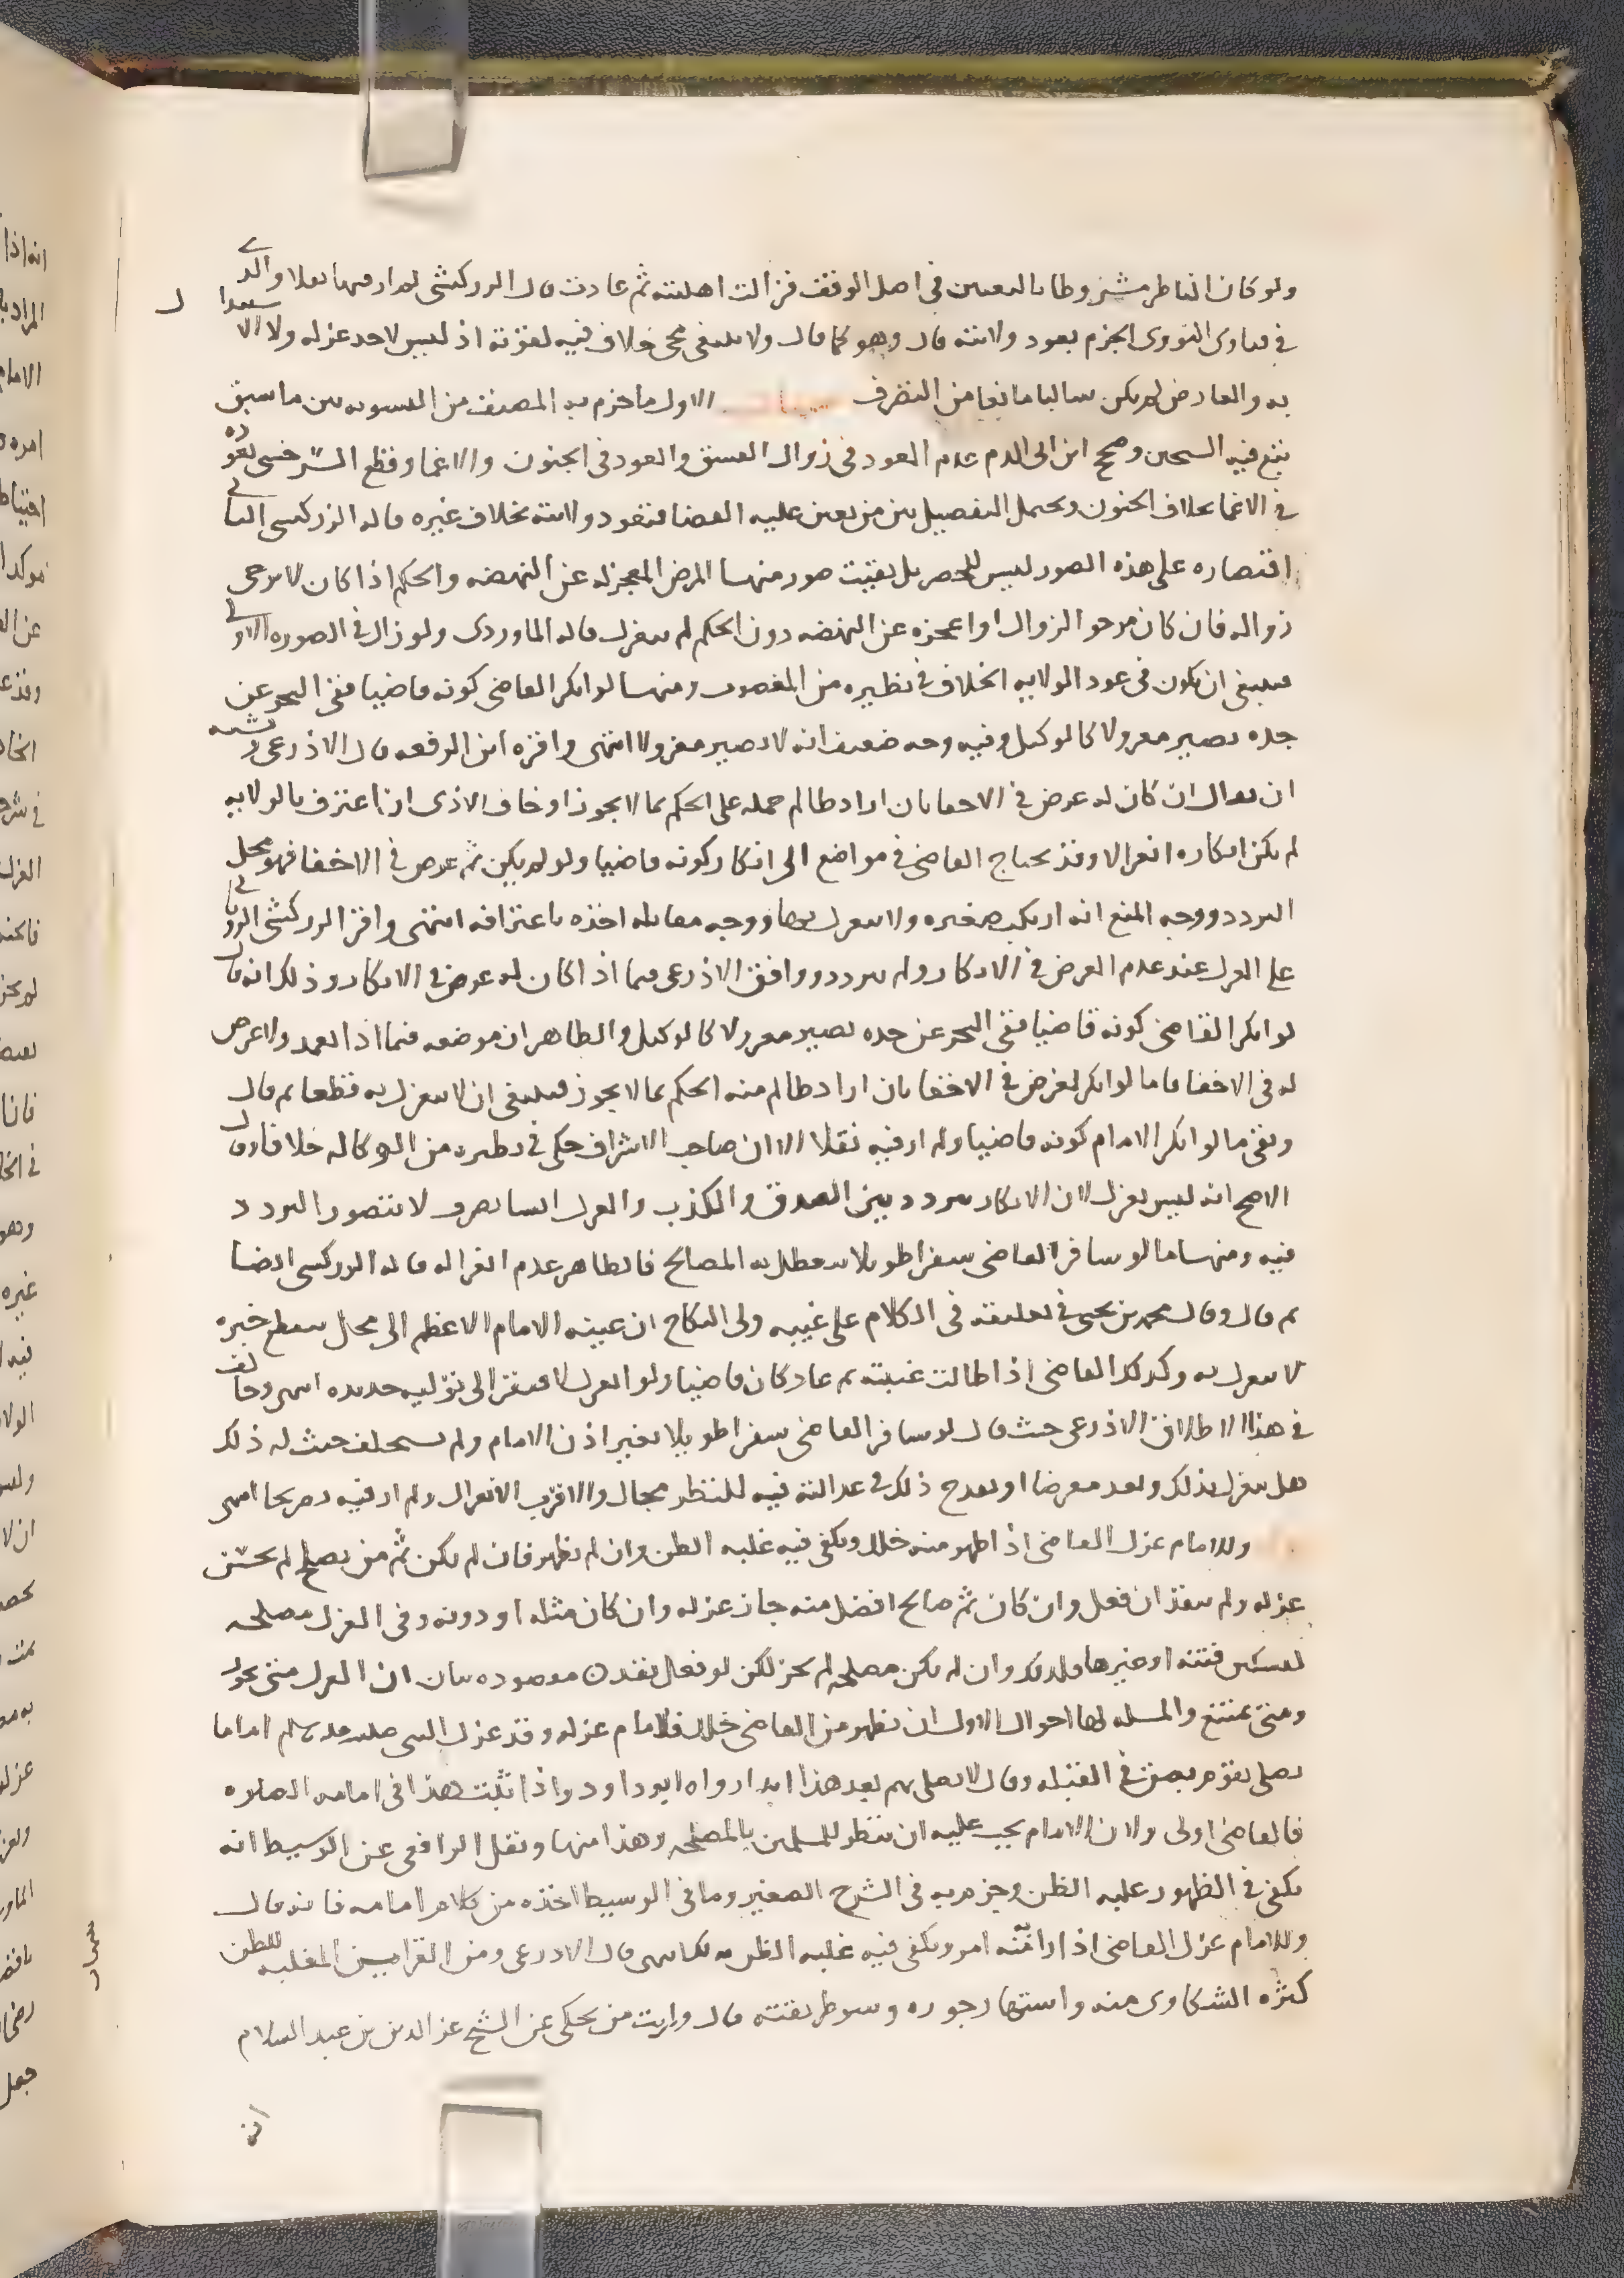 ولو كان الناظر مشروطا بالتعيين في اصل الوقف فزالت اهليته ثم عادت قال الزركشي لم ار فيها نقلا والذي
في فتاوى النووي الجزم بعود ولايته قال وهو كما قال ولا ينبغي مجي خلاف فيه لقوته اذ ليس لاحد عزله ولا الاستبدال
به والعارض لم يكن سالبا مانعا من التصرف الاول ما جزم به المصنف من التسويه بين ما سبق
تبع فيه الشيخين وصحح ابن ابي الدم عدم العود في زوال الفسق والعود في الجنون والاغما وقطع السرخسي بعوده
في الاغما بخلاف الجنون ويحتمل التفصيل بين من تعين عليه القضا فتعود ولايته بخلاف غيره قاله الزركشي الثاني
اقتصاره على هذه الصور ليس للحصر بل بقيت صور منها المرض المعجز له عن النهضه والحكم اذا كان لا يرجى
زواله فان كان مرجو الزوال او اعجزه عن النهضه دون الحكم لم ينعزل قاله الماوردي ولو زال في الصوره الاولى
فينبغي ان يكون في عود الولايه الخلاف في نظيره من المغصوب ومنها لو انكر القاضي كونه قاضيا ففي البحر عن
جده يصير معزولا كالوكيل وفيه وجه ضعيف انه لا يصير معزولا انتهى واقره ابن الرفعه قال الاذرعي ويشبه
ان يقال ان كان له غرض في الاخفا بان اراد ظالم حمله على الحكم بما لا يجوز او خاف الاذى ان اعترف بالولايه
لم يكن انكاره انعزالا وقد يحتاج القاضي في مواضع الى انكار كونه قاضيا ولو لم يكن ثم غرض في الاخفا فهو محل
التردد ووجه المنع انه ارتكب صغيره ولا ينعزل بها ووجه مقابله اخذه باعترافه انتهى واقر الزركشي الروياني
على العزل عند عدم الغرض في الانكار ولم يتردد ووافق الاذرعي فيما اذا كان له غرض في الانكار وذلك انه قال
لو انكر القاضي كونه قاضيا ففي البحر عن جده يصير معزولا كالوكيل والظاهر ان موضعه فيما اذا تعمد ولا غرض
له في الاخفا فاما لو انكر لغرض في الاخفا بان اراد ظالم منه الحكم بما لا يجوز فينبغي ان لا ينعزل به قطعا ثم قال
وبقي ما لو انكر الامام كونه قاضيا ولم ار فيه نقلا الا ان صاحب الاشراف حكى في نظيره من الوكاله خلافا وقال
الاصح انه ليس بعزل لان الانكار يتردد بين الصدق والكذب والعزل انشا تصرف لا يتصور التردد
فيه ومنها ما لو سافر القاضي سفرا طويلا يتعطل به المصالح فالظاهر عدم انعزاله قاله الزركشي ايضا
ثم قال وقال محمد بن يحيى في تعليقه في الكلام على غيبه ولي النكاح ان غيبه الامام الاعظم الى محل ينقطع خبره
لا ينعزل به وكذلك القاضي اذا طالت غيبته ثم عاد كان قاضيا ولو انعزل لافتقر الى توليه جديده انتهى وخالف
في هذا الاطلاق الاذرعي حيث قال لو سافر القاضي سفرا طويلا بغير اذن الامام ولم يستخلف حيث له ذلك
هل ينعزل بذلك ويعد معرضا او يقدح ذلك في عدالته فيه للنظر مجال والاقرب الانعزال ولم ار فيه تصريحا انتهى
وللامام عزل القاضي اذا ظهر منه خلل ويكفي فيه غلبه الظن وان لم يظهر فان لم يكن ثم من يصلح لم يحسن
عزله ولم ينفذ ان فعل وان كان ثم صالح افضل منه جاز عزله وان كان مثله او دونه وفي العزل مصلحه
لتسكين فتنه او غيرها فله ذلك وان لم يكن مصلحه لم يجز لكن لو فعل نفذ ن مقصوده بيان ان العزل متى يجوز
ومتى يمتنع والمسله لها احوال الاول ان يظهر من القاضي خلل فللامام عزله وقد عزل النبي صلى الله عليه وسلم اماما
يصلي بقوم بصق في القبله وقال لا يصلي بهم بعد هذا ابدا رواه ابو داود واذا ثبت هذا في امامه الصلاه
فالقاضي اولى ولان الامام يجب عليه ان ينظر للمسلمين بالمصلحه وهذا منها ونقل الرافعي عن الوسيط انه
يكفي في الظهور غلبه الظن وجزم به في الشرح الصغير وما في الوسيط اخذه من كلام امامه فانه قال
وللامام عزل القاضي اذا رابه منه امر ويكفي فيه غلبه الظن انتهى قال الاذرعي ومن القراين المغلبه للظن
كثره الشكاوى منه واستهار جوره وسو طريقته قال ورايت من يحكي عن الشيخ عز الدين بن عبد السلام